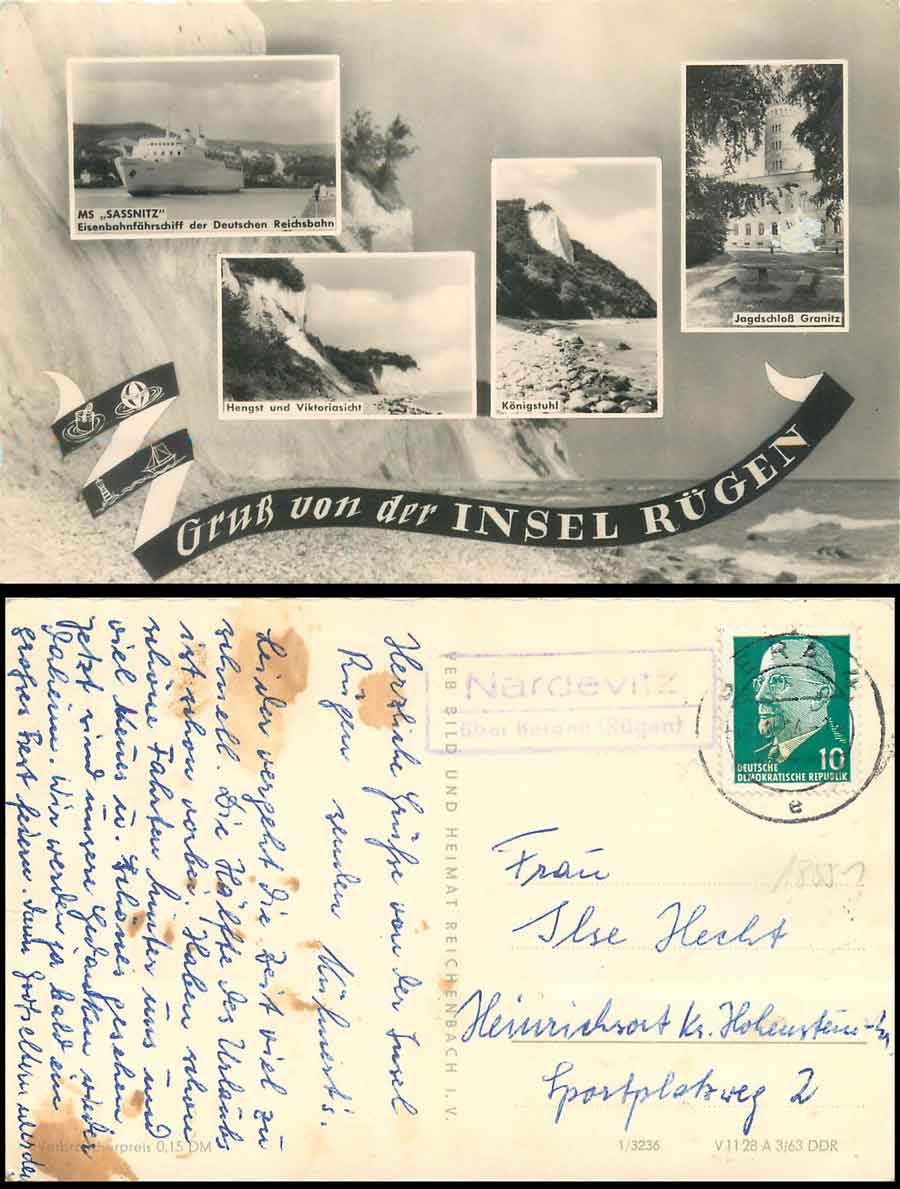 MS „SASSNITZ"
Eisenbahnfährschiff der Deutschen Reichsbahn
Hengst und Viktoriasicht
Königstuhl
Jagdschloß Granitz
Gruß von der INSEL RÜGEN
Herzliche Grüße von der Insel
Rügen senden
Leider vergeht die Zeit viel zu
schnell. Die Hälfte des Urlaubs
ist schon vorbei. Haben schon
schöne Fahrten hinter uns und
viel Neues u. Schönes gesehen.
Jetzt sind unsere Gedanken wieder
daheim. Wir werden ja bald ein
großes Fest feiern, denn Großeltern werden
VEB BILD UND HEIMAT REICHENBACH I. V.
Nardevitz
über Bergen (Rügen)
10
DEUTSCHE
DEMOKRATISCHE REPUBLIK
e
Frau
Ilse Hecht
Heinrichsort Kr. Hohenstein-Er.
Sportplatzweg 2
Verbraucherpreis 0,15 DM
1/3236
V 11 28 A 3/63 DDR